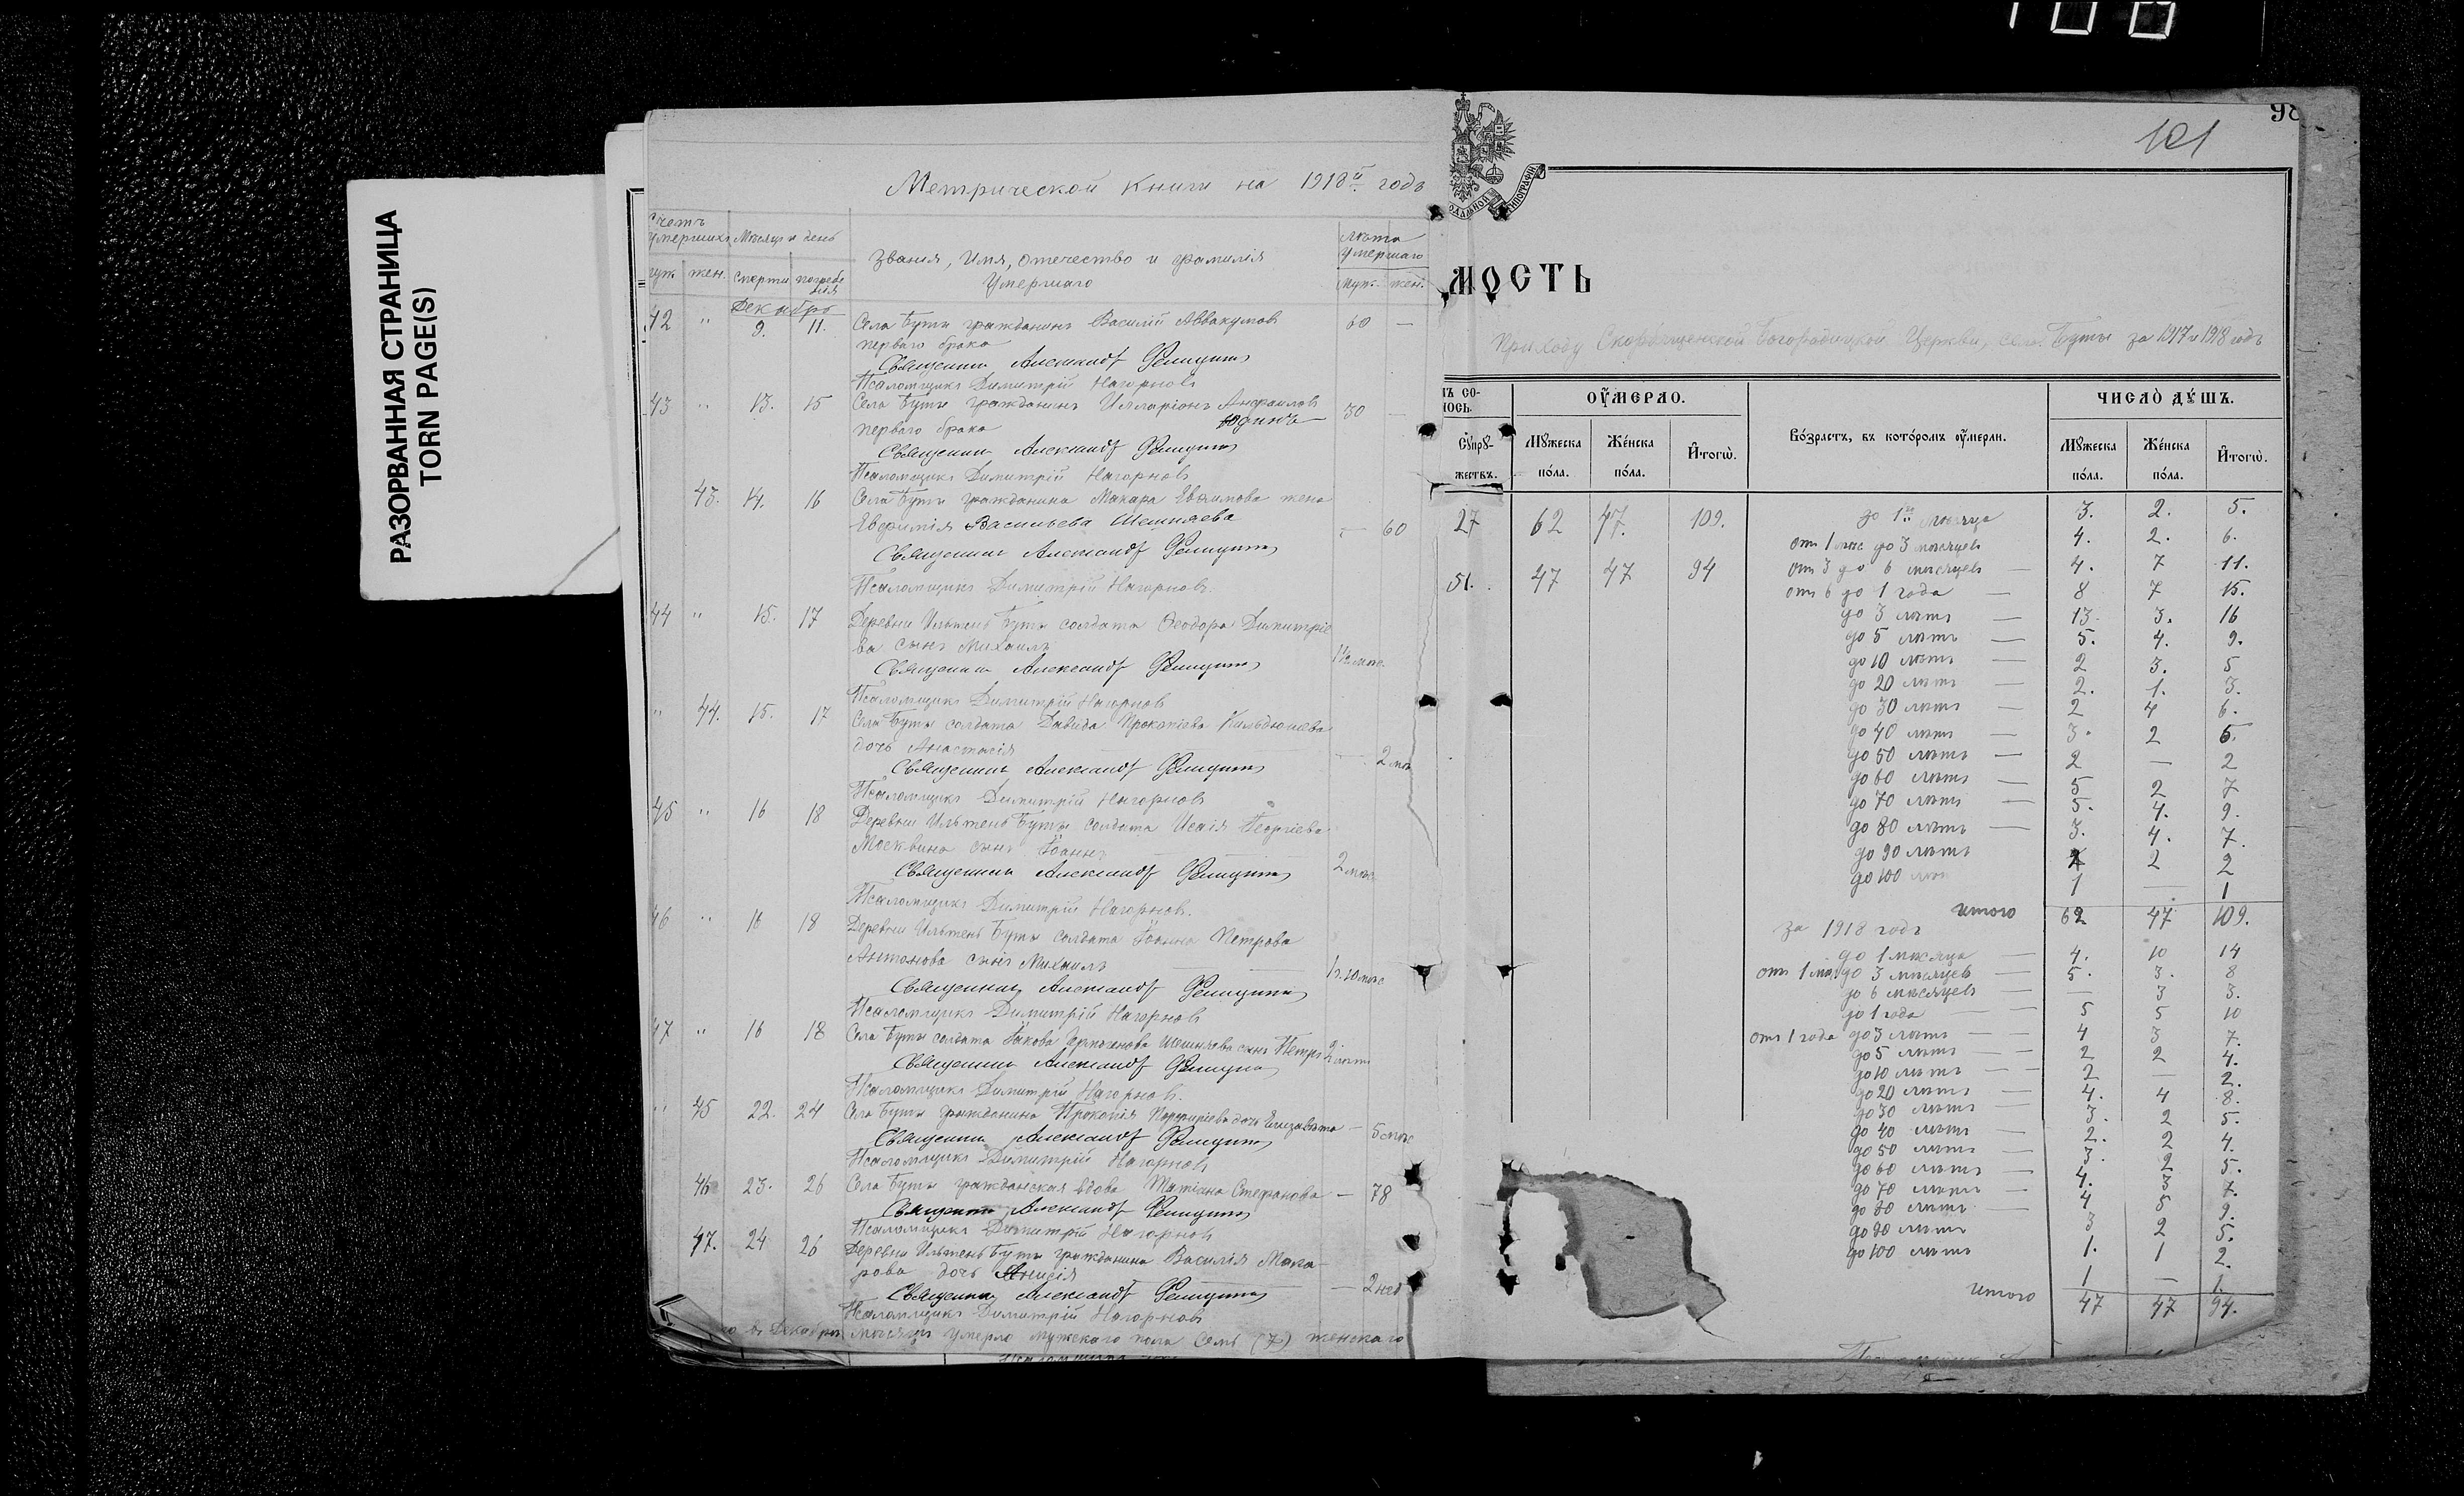 РАЗОРВАННАЯ СТРАНИЦА
TORN PAGE(S)
Метрической Книги на 1918й годъ
Счетъ умершихъ
Мѣсяцъ и день
Званія, Имя, отечество и фамилія Умершаго
Лѣта умершаго
муж. жен. смерти погребенія
муж. жен.
Декабрь
42 " 9. 11. Села Буты гражданинъ Василій Аввакумовъ 60 —
перваго брака
Священникъ Александръ
Псаломщикъ Димитрій Нагорновъ
43 " 13. 15 Села Буты гражданинъ Илларіонъ 30 —
перваго брака
Священникъ Александръ
Псаломщикъ Димитрій Нагорновъ
43. 14. 16 Села Буты гражданина Макара Евѳимова жена
Евфимія Васильева Шешняева — 60
Священникъ Александръ
Псаломщикъ Димитрій Нагорновъ.
44 " 15. 17 Деревни Ильтень Буты солдата Ѳеодора Димитріе
ва сынъ Михаилъ
Священникъ Александръ
Псаломщикъ Димитрій Нагорновъ
" 44. 15. 17 Села Буты солдата Давида Прокопіева Кильдюшева
дочь Анастасія — 2 мѣс
Священникъ Александръ
Псаломщикъ Димитрій Нагорновъ
45 " 16 18 Деревни Ильтень Буты солдата Георгіева
Москвина сынъ Іоаннъ 2 мѣс.
Священникъ Александръ
Псаломщикъ Димитрій Нагорновъ.
46 " 16 18 Деревни Ильтень Буты солдата Іоанна Петрова
Антонова сынъ Михаилъ 1 г. 10 мѣс
Священникъ Александръ
Псаломщикъ Димитрій Нагорновъ
47 " 16 18 Села Буты солдата Іакова Шешняева сынъ Петръ
Священникъ Александръ
Псаломщикъ Димитрій Нагорновъ.
" 45 22. 24 Села Буты гражданина Прокопія Порфиріева дочь Елизавета — 5 мѣс
Священникъ Александръ
Псаломщикъ Димитрій Нагорновъ
46 23. 26 Села Буты гражданская вдова Татіана Стефанова — 78
Священникъ Александръ
Псаломщикъ Димитрій Нагорновъ
47. 24 26 Деревни Ильтень Буты гражданина Василія Мака-
рова дочь Анисія — 2 нед
Священникъ Александръ
Псаломщикъ Димитрій Нагорновъ
въ Декабрѣ мѣсяцѣ умерло мужскаго пола семь (7) женскаго
98
101
мость
Приходу Скорбященской Богородицкой Церкви, села Буты за 1917 и 1918 годъ
Оумерло.
Возрастъ, въ которомъ оумерли.
Число душъ.
Супру-
жествъ.
Мужеска пола.
Женска пола.
Итогѡ.
Мужеска пола.
Женска пола.
Итогѡ.
27 62 47. 109.
51. 47 47 94
до 1го мѣсяца 3. 2. 5.
отъ 1 мѣс до 3 мѣсяцевъ 4. 2. 6.
отъ 3 до 6 мѣсяцевъ — 4. 7 11.
отъ 6 до 1 года — 8 7 15.
до 3 лѣтъ — 13. 3. 16
до 5 лѣтъ — 5. 4. 9.
до 10 лѣтъ — 2 3. 5
до 20 лѣтъ — 2. 1. 3.
до 30 лѣтъ — 2 4 6.
до 40 лѣтъ — 3. 2 5.
до 50 лѣтъ — 2 — 2
до 60 лѣтъ — 5 2 7
до 70 лѣтъ — 5. 4. 9.
до 80 лѣтъ — 3. 4. 7.
до 90 лѣтъ 2 2
до 100 лѣт 1 — 1
итого 62 47 109.
за 1918 годъ
до 1 мѣсяца — 4. 10 14
отъ 1 мѣс до 3 мѣсяцевъ — 5. 3. 8
до 6 мѣсяцевъ — — 3 3.
до 1 года — 5 5 10
отъ 1 года до 3 лѣтъ — 4 3 7.
до 5 лѣтъ — 2 2 4.
до 10 лѣтъ — 2 — 2.
до 20 лѣтъ — 4. 4 8.
до 30 лѣтъ — 3. 2 5.
до 40 лѣтъ — 2. 2 4.
до 50 лѣтъ — 3. 2 5.
до 60 лѣтъ — 4. 3 7.
до 70 лѣтъ — 4 5 9.
до 80 лѣтъ — 3 2 5.
до 90 лѣтъ 1. 1 2.
до 100 лѣтъ 1 — 1.
итого 47 47 94.